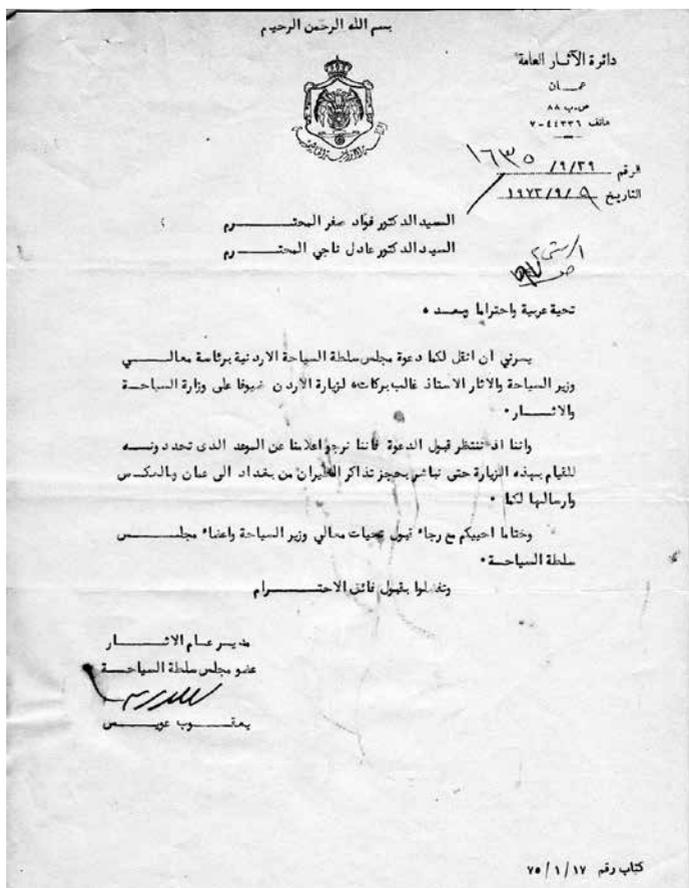 بسم الله الرحمن الرحيم
دائرة الآثار العامة
عمـــان
ص.ب ٨٨
هاتف ٤٤٣٣٦-٧
الرقم ٩/٢٩/ ١٦٣٥
التاريخ ١٩٧٢/٩/٥
السيد الدكتور فؤاد سفر المحتـــــرم
السيد الدكتور عادل ناجي المحتـــــرم
تحية عربية واحتراما وبعد ٠
يسرني أن انقل لكما دعوة مجلس سلطة السياحة الاردنية برئاسة معالـــي
وزير السياحة والاثار الاستاذ غالب بركات، لزيارة الاردن ضيوفا على وزارة السياحـــة
والاثـــار ٠
واننا اذ ننتظر قبول الدعوة فأننا نرجو اعلامنا عن الموعد الذى تحددونـــه
للقيام بهذه الزيارة حتى نباشر بحجز تذاكر الطيران من بغداد الى عمان وبالعكـــس
وارسالها لكما ٠
وختاما احييكم مع رجاء قبول تحيات معالي وزير السياحة واعضاء مجلـــس
سلطة السياحـــة ٠
وتفضلوا بقبول فائق الاحتـــــرام
مديـر عـام الاثـــــار
عضو مجلس سلطة السياحـــة
يعقـــوب عويـــس
كتاب رقم ٧٥/١/١٧